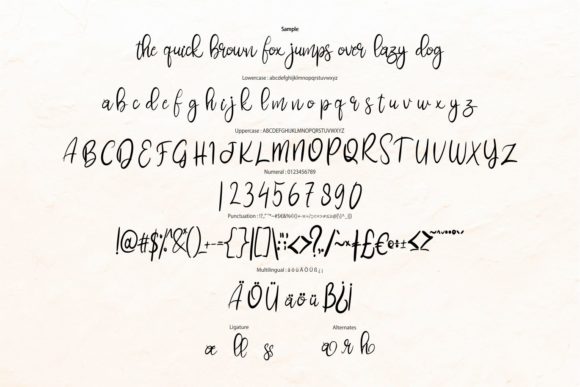 Sample
the quick brown fox jumps over lazy dog
Lowercase : abcdefghijklmnopqrstuvwxyz
a b c d e f g h i j k l m n o p q r s t u v w x y z
Uppercase : ABCDEFGHIJKLMNOPQRSTUVWXYZ
A B C D E F G H I J K L M N O P Q R S T U V W X Y Z
Numeral : 0123456789
1 2 3 4 5 6 7 8 9 0
Multilingual : ä ö ü Ä Ö Ü ß ¿ ¡
Ä Ö Ü ä ö ü ß ¿ ¡
Ligature Alternates
æ ll ss a r h